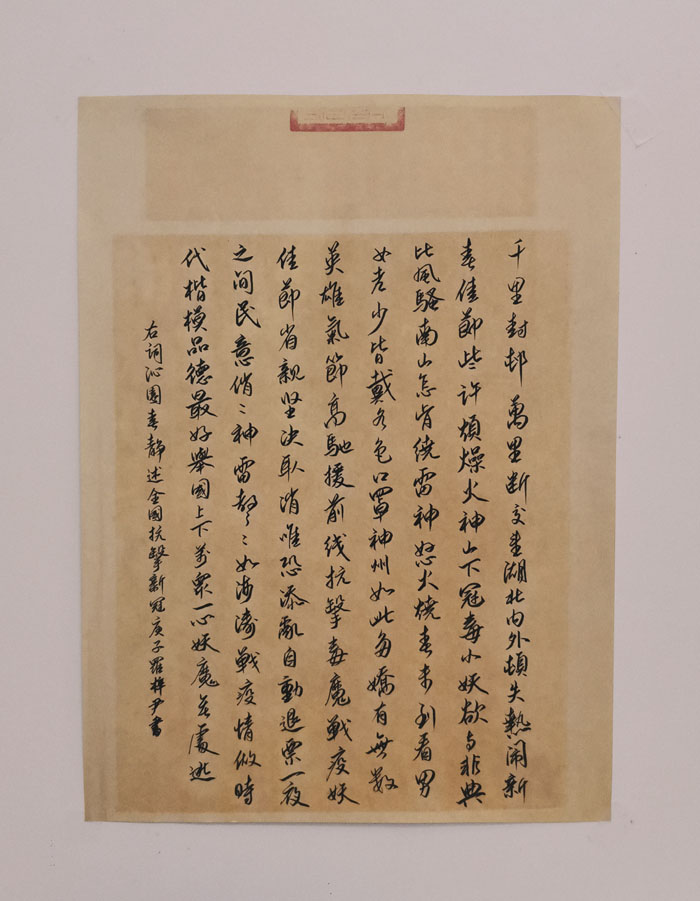 千里封邨萬里断交看湖北内外頓失熱闹新
春佳節些许煩燥火神山下冠毒小妖欲与非典
比風騷南山怎肯繞雷神怒火燒春未到看男
女老少皆戴各色口罩神州如此多嬌有無数
英雄氣節高馳援前线抗擊毒魔戰疫妖
佳節省親坚决取消唯恐添亂自動退票一夜
之间民意俏〻神雷聲〻如海濤戰疫情倣時
代楷模品德最好舉國上下万衆一心妖魔無處逃
右詞沁園春静述全國抗擊新冠庚子羅梓尹書